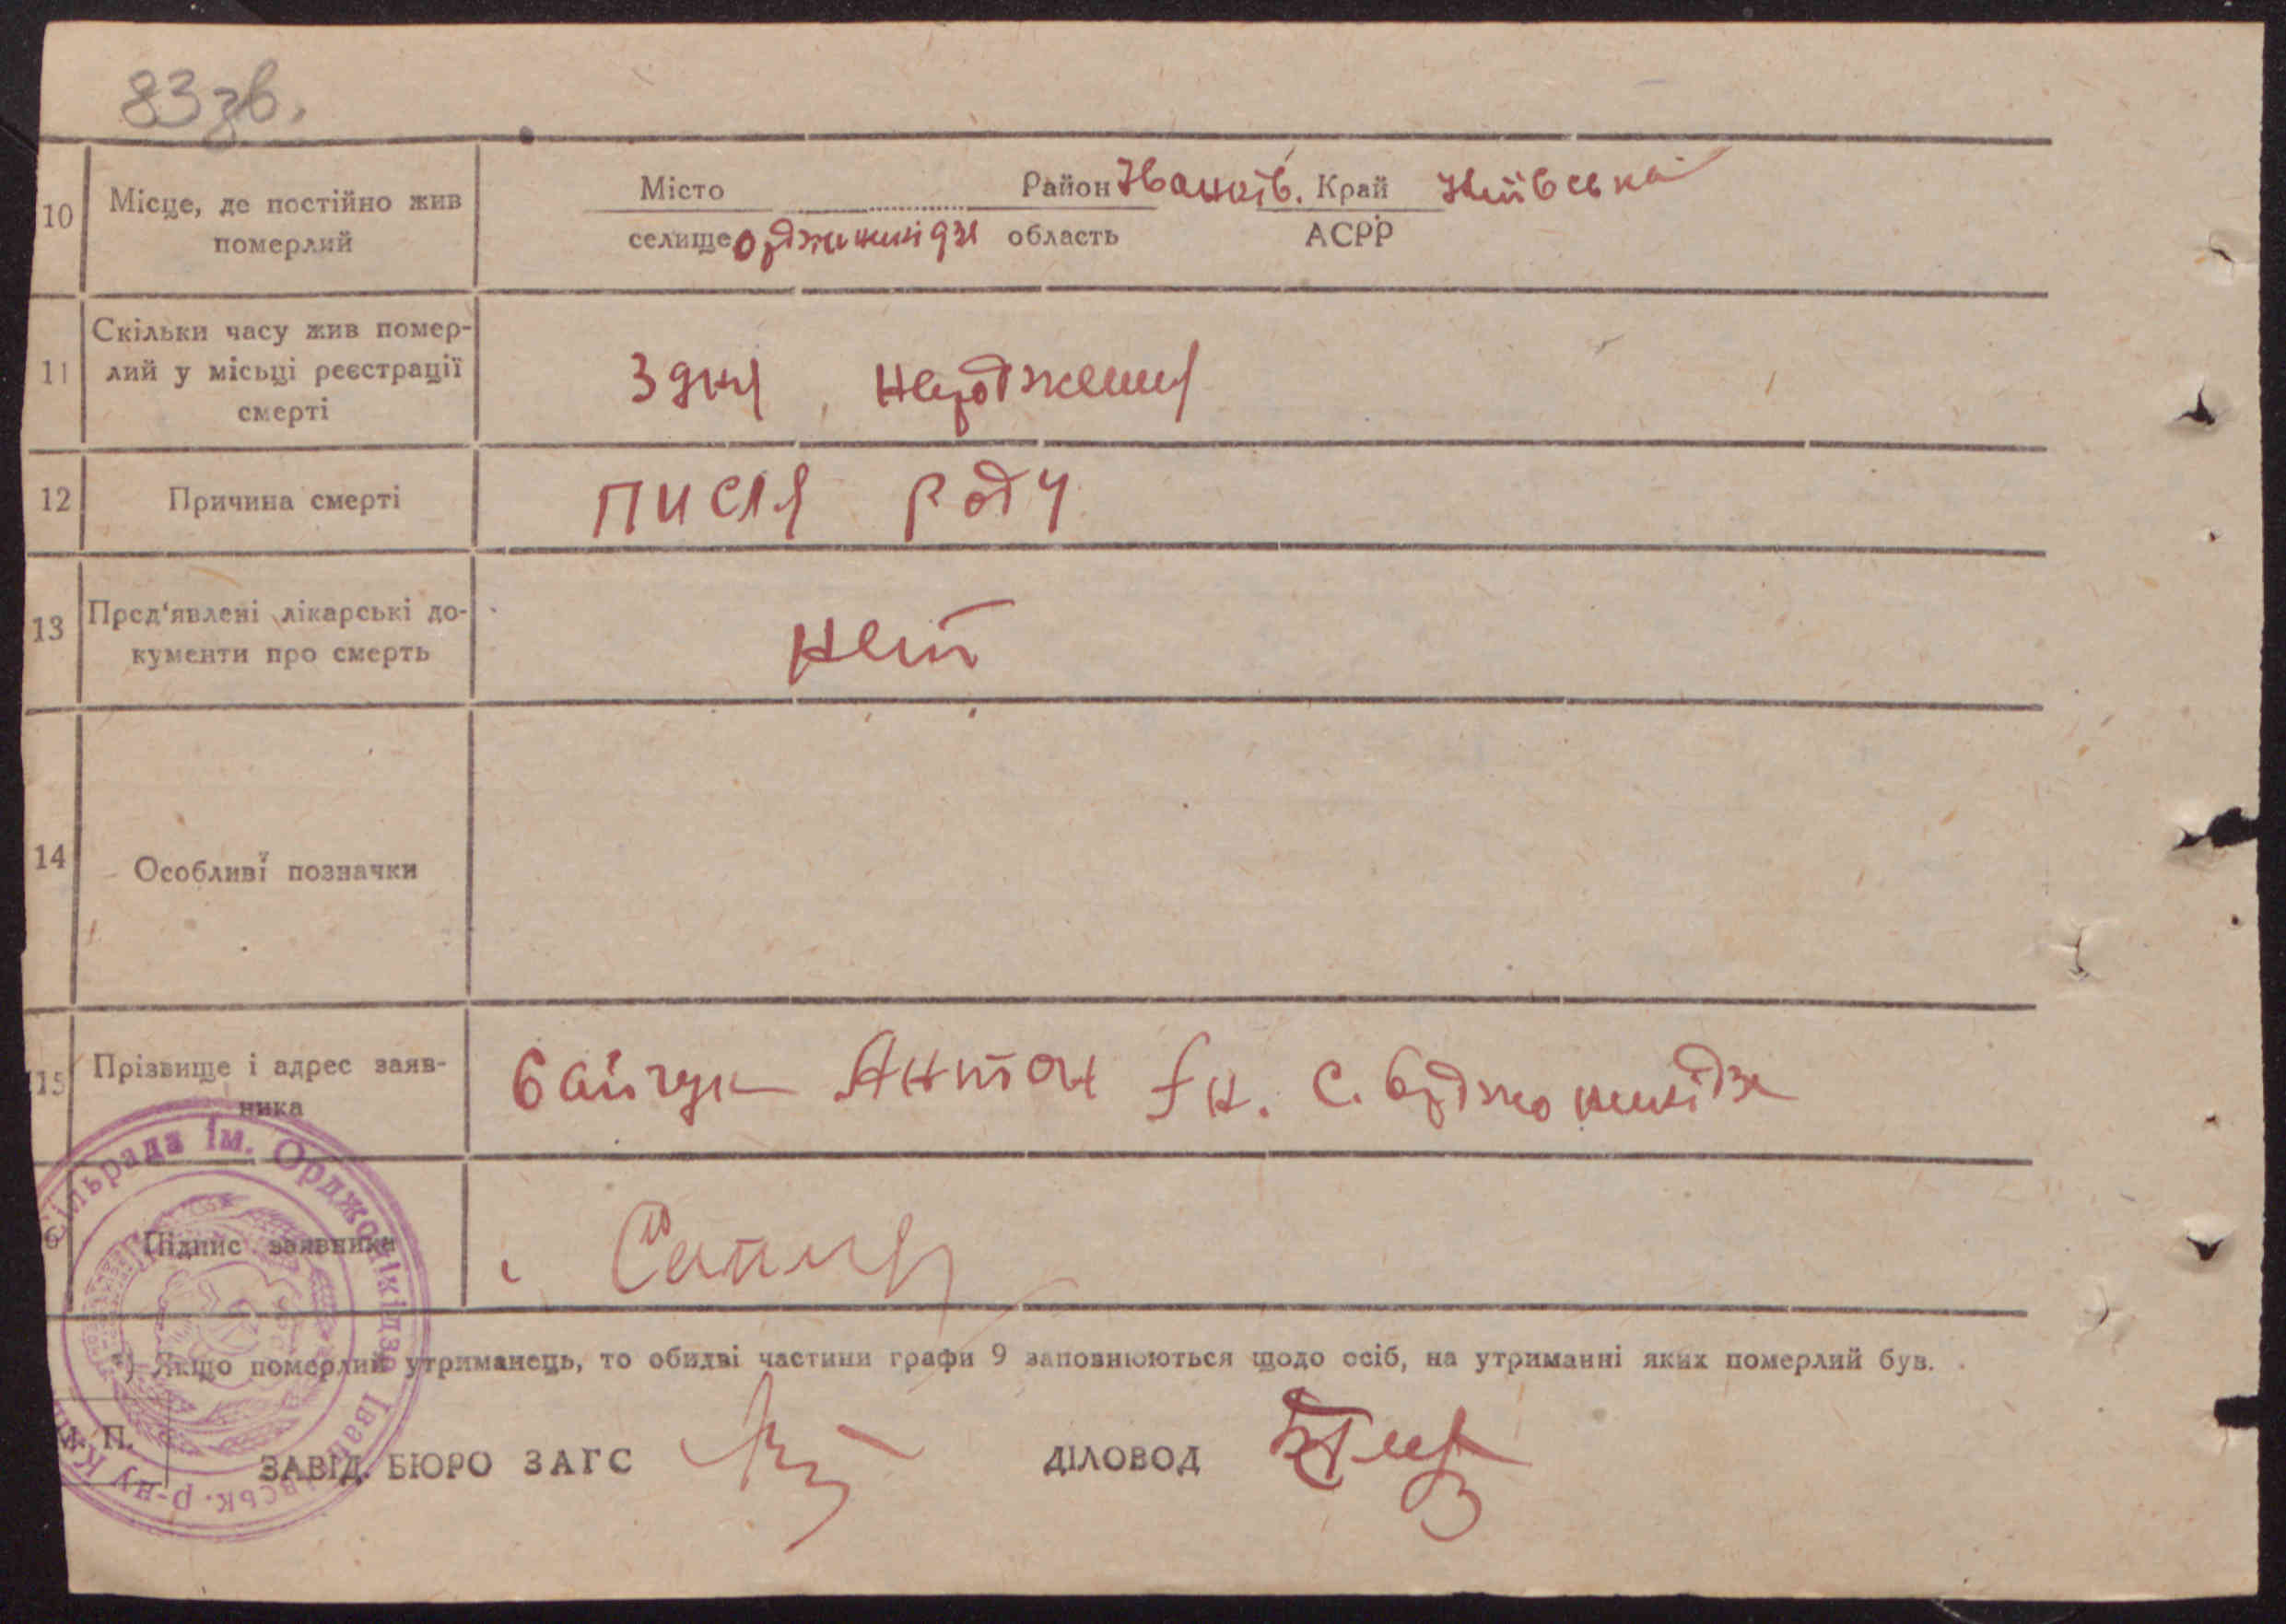 83 зв.
10 Місце, де постійно жив померлий
Місто Район Іванків. Край Київська
селище Орджонікідзе область АСРР
11 Скільки часу жив помер-
лий у місьці реєстрації
смерті
З дня народження
12 Причина смерті писля роду
13 Пред'явлені лікарські до-
кументи про смерть
нет
14 Особливі позначки
15 Прізвище і адрес заяв-
ника
Байчук Антон с. Орджонікідзе
Підпис заявника
*) Якщо померлий утриманець, то обидві частини графи 9 заповнюються щодо осіб, на утриманні яких померлий був.
М. П.
ЗАВІД. БЮРО ЗАГС ДІЛОВОД
Сільрада ім. Орджонікідзе Іванківськ. р-ну